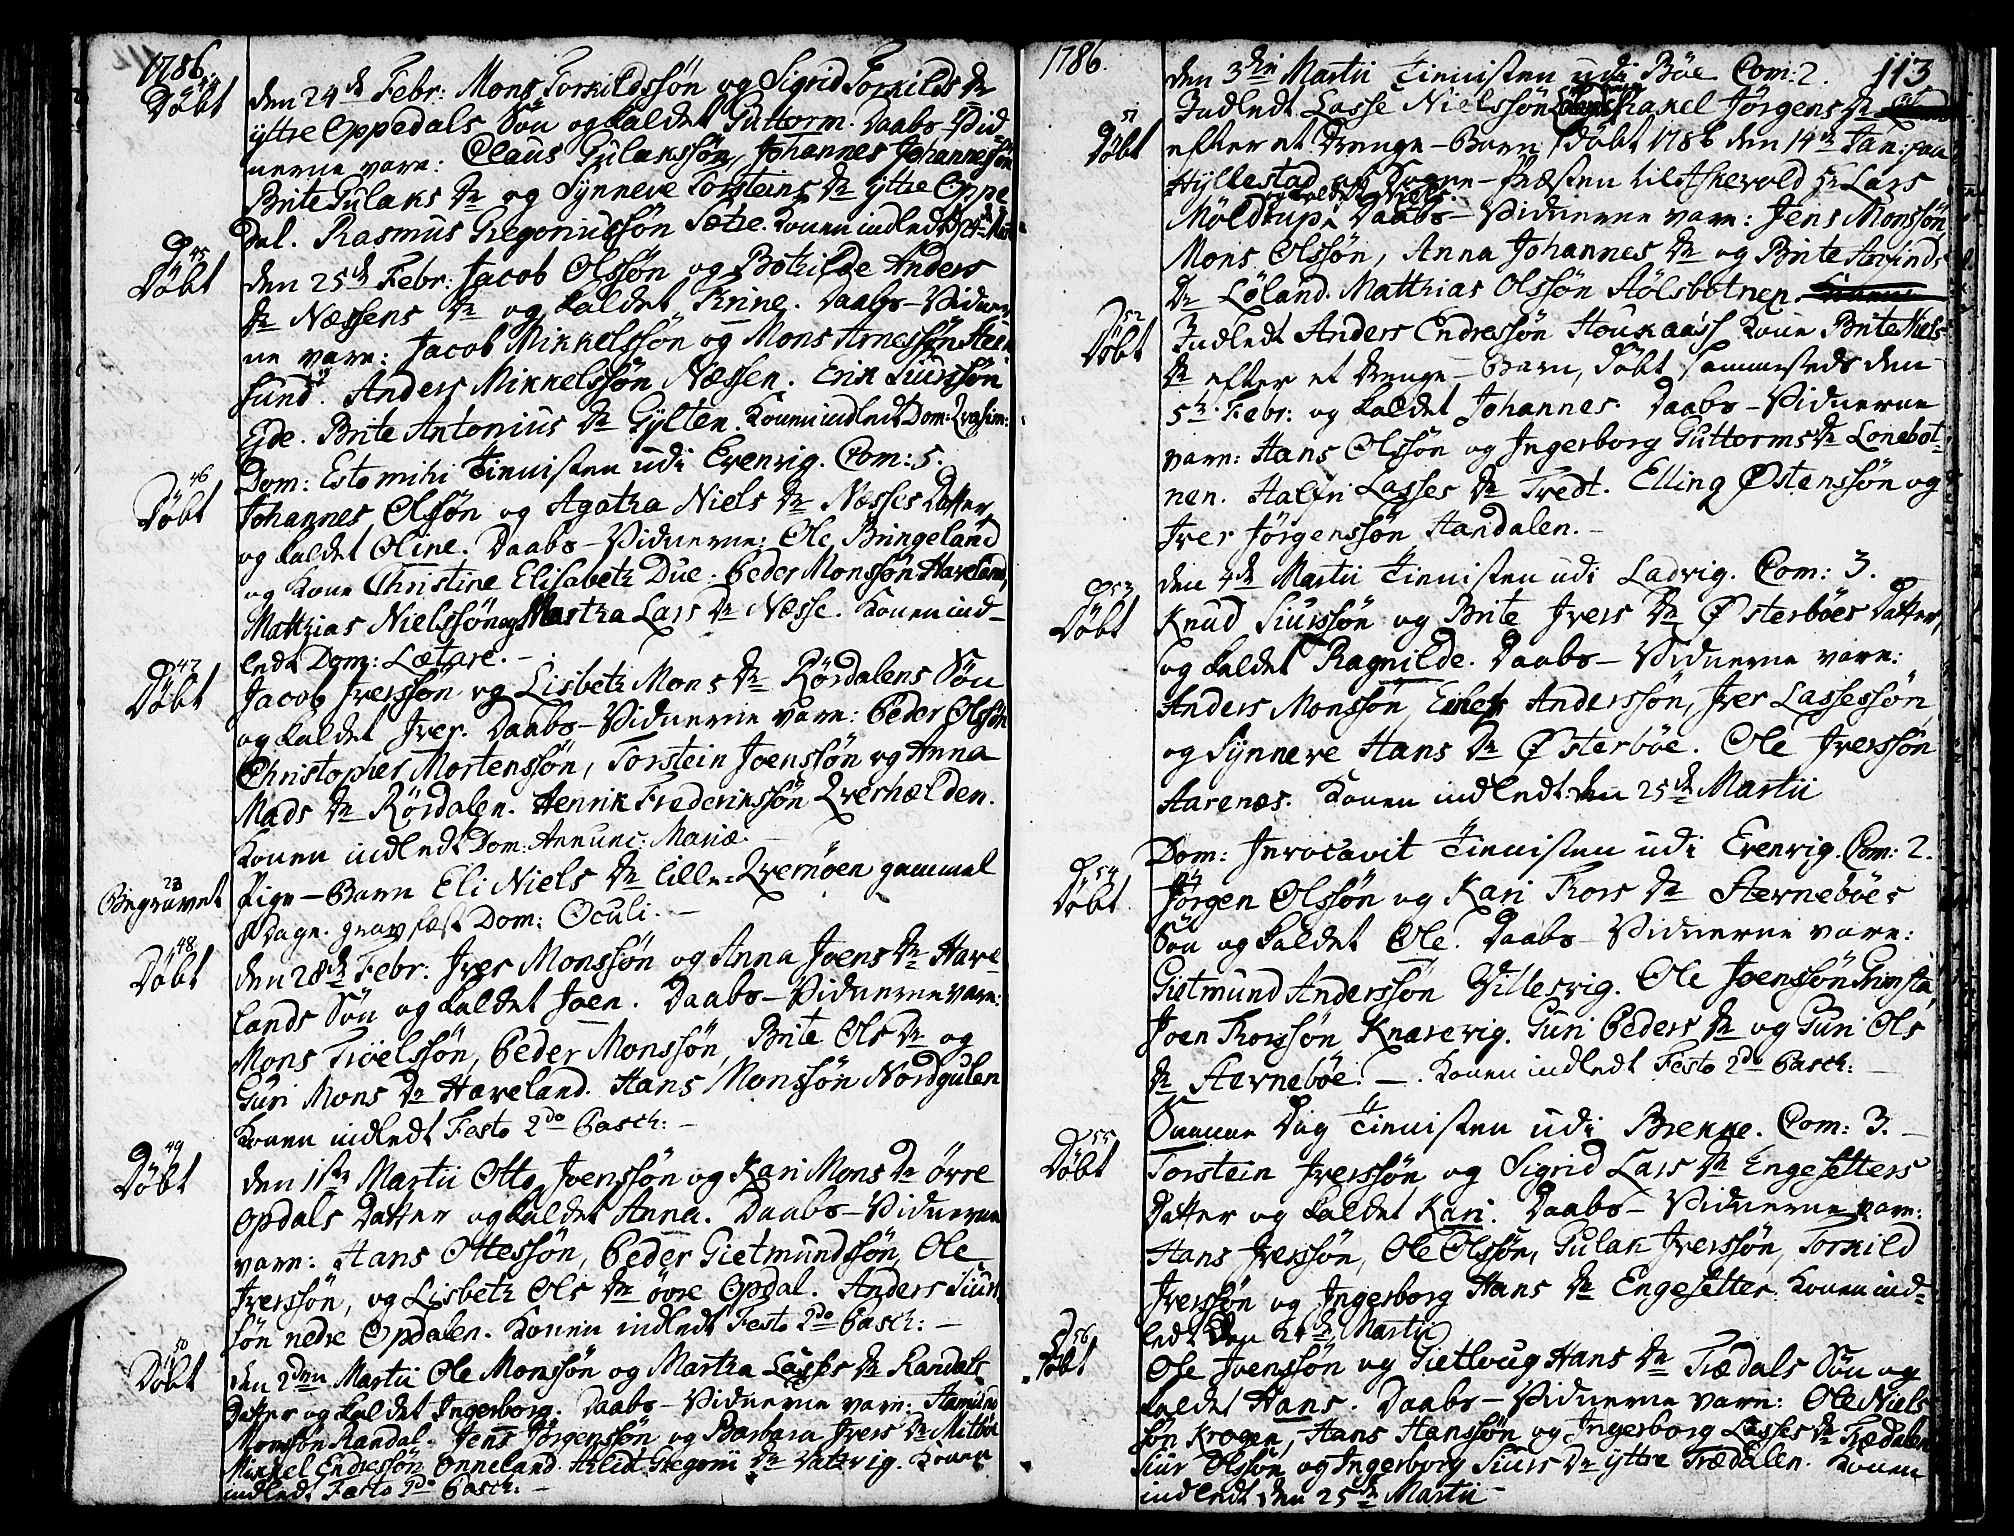 1786.
44
Døbt
den 24de Febr: Mons Torkildssøn og Sigrid Torkilds Dr
yttre Oppedals Søn og kaldet Guttorm. Daabs-Vid-
nerne vare: Claus Gulakssøn, Johannes Johannessøn
Brite Gulaks Dr og Synneve Torsteins Dr yttre Oppe
Dal. Rasmus Gregoriussøn Sætre. Konen indledt
45
Døbt
den 25de Febr: Jacob Olssøn og Bothilde Anders
Dr Næssens Dr og kaldet Trine. Daabs-Vidner
ne vare: Jacob Mikkelssøn og Mons Arnessøn Steen
sund. Anders Mikkelssøn Næssen. Erik Siurssøn
Eide. Brite Antonius Dr Gylten. Konen indledt Dom:
46
Døbt
Dom: Estomihi Tienisten udi Evenvig. Com: 5.
Johannes Olssøn og Agatha Niels Dr Næsses Datter
og kaldet Oline. Daabs-Vidnerne: Ole Bringeland
og Kone Christine Elisabeth Due. Peder Monssøn Haveland,
Matthias Nielssøn og Martha Lars Dr Næsse. Konen ind-
ledt Dom: Lætare. -
47
Døbt
Jacob Iverssøn og Lisbeth Mons Dr Rørdalens Søn
og kaldet Iver. Daabs-Vidnerne vare: Peder Olssøn
Christopher Mortenssøn, Torstein Joenssøn og Anna
Mads Dr Rørdalen. Henrik Frederikssøn Qverhælden.
Konen indledt Dom: Annunc: Mariæ. -
23
Begravet
Pige-Barn Eli Niels Dr lille-Qvernøen gammel
8 Dage. gravfæst Dom: Oculi. -
48
Døbt
den 28de Febr: Iver Monssøn og Anna Joens Dr Have-
lands Søn og kaldet Joen. Daabs-Vidnerne vare:
Mons Tiøelssøn, Peder Monssøn, Brite Ols Dr og
Guri Mons Dr Haveland. Hans Monssøn Nordgulen
Konen indledt Festo 2do Pasch: -
49
Døbt
den 1ste Martii Otto Joenssøn og Kari Mons Dr øvre
Opdals Datter og kaldet Anna. Daabs-Vidnerne
vare: Hans Ottessøn, Peder Gietmundssøn, Ole
Iverssøn, og Lisbeth Ols Dr øvre Opdal. Anders Siurs
søn nedre Opdalen. Konen indledt Festo 2do Pasch: -
50
Døbt
den 2den Martii Ole Monssøn og Martha Lasses Dr Randals
Datter og kaldet Ingerborg. Daabs-Vidnerne vare:
Monssøn Randal. Jens Jørgenssøn og Barbara Ivers Dr
Mikkel Endressøn Ønneland. Arlid Gregorii Dr Vatsvig. Konen
indledt Festo 2do Pasch: -
1786.
113
den 3die Martii Tienisten udi Bøe Com: 2.
51
Døbt
Indledt Lasse Nielssøn Rakel Jørgens Dr
efter et Drenge-Barn, døbt 1786 den 14de Jan: paa
Hyllestad af Sogne-Præsten til Askevold Hr Lars
kaldet Niels.
Møldrup. Daabs-Vidnerne vare: Jens Monssøn,
Mons Olssøn, Anna Johannes Dr og Brite Aavinds
Dr Løland. Matthias Olssøn Hølsbotnen.
52
Døbt
Indledt Anders Endressøn Houkaass Kone Brite Niels
Dr efter et Drenge-Barn, døbt sammesteds den
5te Febr: og kaldet Johannes. Daabs-Vidnerne
vare: Hans Olssøn og Ingerborg Guttorms Dr Lonebot-
nen. Halfri Lasses Dr Tredt. Elling Østenssøn og
Iver Jørgenssøn Handalen. -
den 4de Martii Tienisten udi Ladvig. Com: 3.
53
Døbt
Knud Siurssøn og Brite Ivers Dr Østerbøes Datter,
og kaldet Ragnilde. Daabs-Vidnerne vare:
Anders Monssøn, Anderssøn, Iver Lassessøn,
og Synneve Hans Dr Østerbøe. Ole Iverssøn
Aarenæs. Konen indledt den 25de Martii
Dom: Invocavit Tienisten udi Evenvig. Com: 2.
54
Døbt
Jørgen Olssøn og Kari Thors Dr Stevnebøes
Søn og kaldet Ole. Daabs-Vidnerne vare:
Gietmund Anderssøn Yillesvig. Ole Joenssøn Grinstad,
Joen Thorssøn Knarevig. Guri Peders Dr og Guri Ols
Dr Stevnebøe. -. Konen indledt Festo 2do Pasch: -
Samme Dag Tienisten udi Brekke. Com: 3. -
55
Døbt
Torstein Iverssøn og Sigrid Lars Dr Engesetters
Datter og kaldet Kari. Daabs-Vidnerne vare:
Hans Iverssøn, Ole Olssøn, Gulak Iverssøn, Torkild
Iverssøn og Ingerborg Hans Dr Engesetter. Konen ind-
ledt den 24de Martii
56
Døbt
Ole Joenssøn og Gietloug Hans Dr Trædals Søn og
kaldet Hans. Daabs-Vidnerne vare: Ole Niels
søn Krogen, Hans Hanssøn og Ingerborg Lasses Dr Trædalen
Siur Olssøn og Ingerborg Siurs Dr yttre Trædalen. Konen
indledt den 25de Martii -